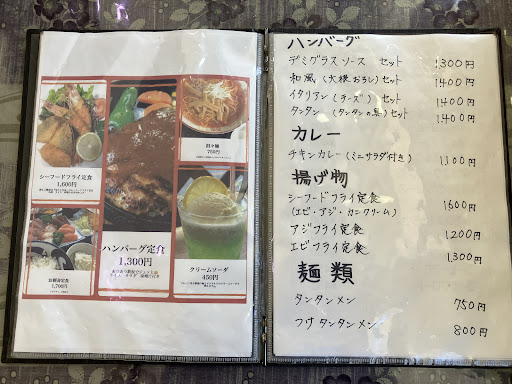 シーフードフライ定食
1,600円
担々麺
750円
ハンバーグ定食
1,300円
お刺身定食
1,700円
クリームソーダ
450円
ハンバーグ
デミグラスソース セット 1300円
和風(大根おろし)セット 1400円
イタリアン(チーズ) セット 1400円
タンタン(タンタンの素)セット 1400円
カレー
チキンカレー(ミニサラダ付き) 1100円
揚げ物
シーフードフライ定食
(エビ・アジ・カニクリーム) 1600円
アジフライ定食 1,200円
エビフライ定食 1,300円
麺類
タンタンメン 750円
つけタンタンメン 800円